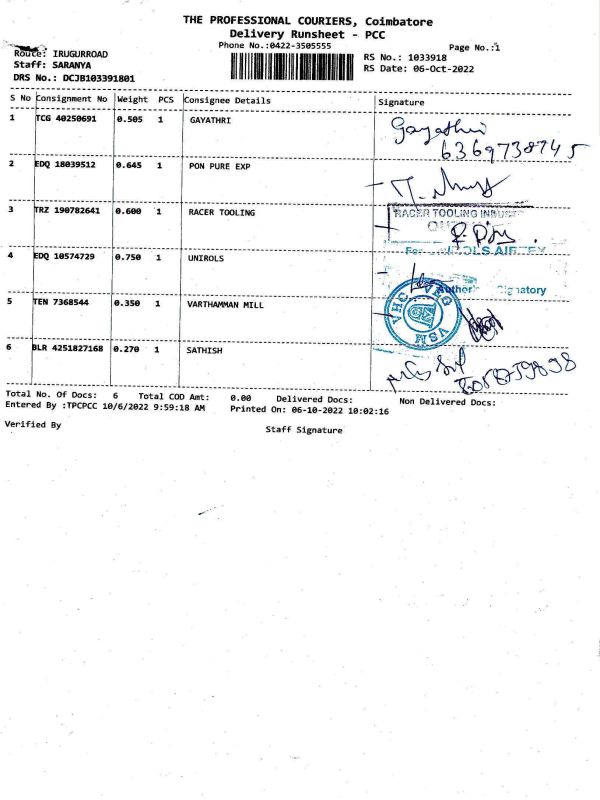 THE PROFESSIONAL COURIERS, Coimbatore
Delivery Runsheet - PCC
Phone No.:0422-3505555
Page No.:1
Route: IRUGURROAD
RS No.: 1033918
Staff: SARANYA
RS Date: 06-Oct-2022
DRS No.: DCJB103391801
S No Consignment No Weight PCS Consignee Details Signature
1 TCG 40250691 0.505 1 GAYATHRI Gayathri
6369738745
2 EDQ 18039512 0.645 1 PON PURE EXP
3 TRZ 190782641 0.600 1 RACER TOOLING RACER TOOLING
4 EDQ 10574729 0.750 1 UNIROLS
Signatory
5 TEN 7368544 0.350 1 VARTHAMMAN MILL
6 BLR 4251827168 0.270 1 SATHISH
Total No. Of Docs: 6 Total COD Amt: 0.00 Delivered Docs: Non Delivered Docs:
Entered By :TPCPCC 10/6/2022 9:59:18 AM Printed On: 06-10-2022 10:02:16
Verified By
Staff Signature